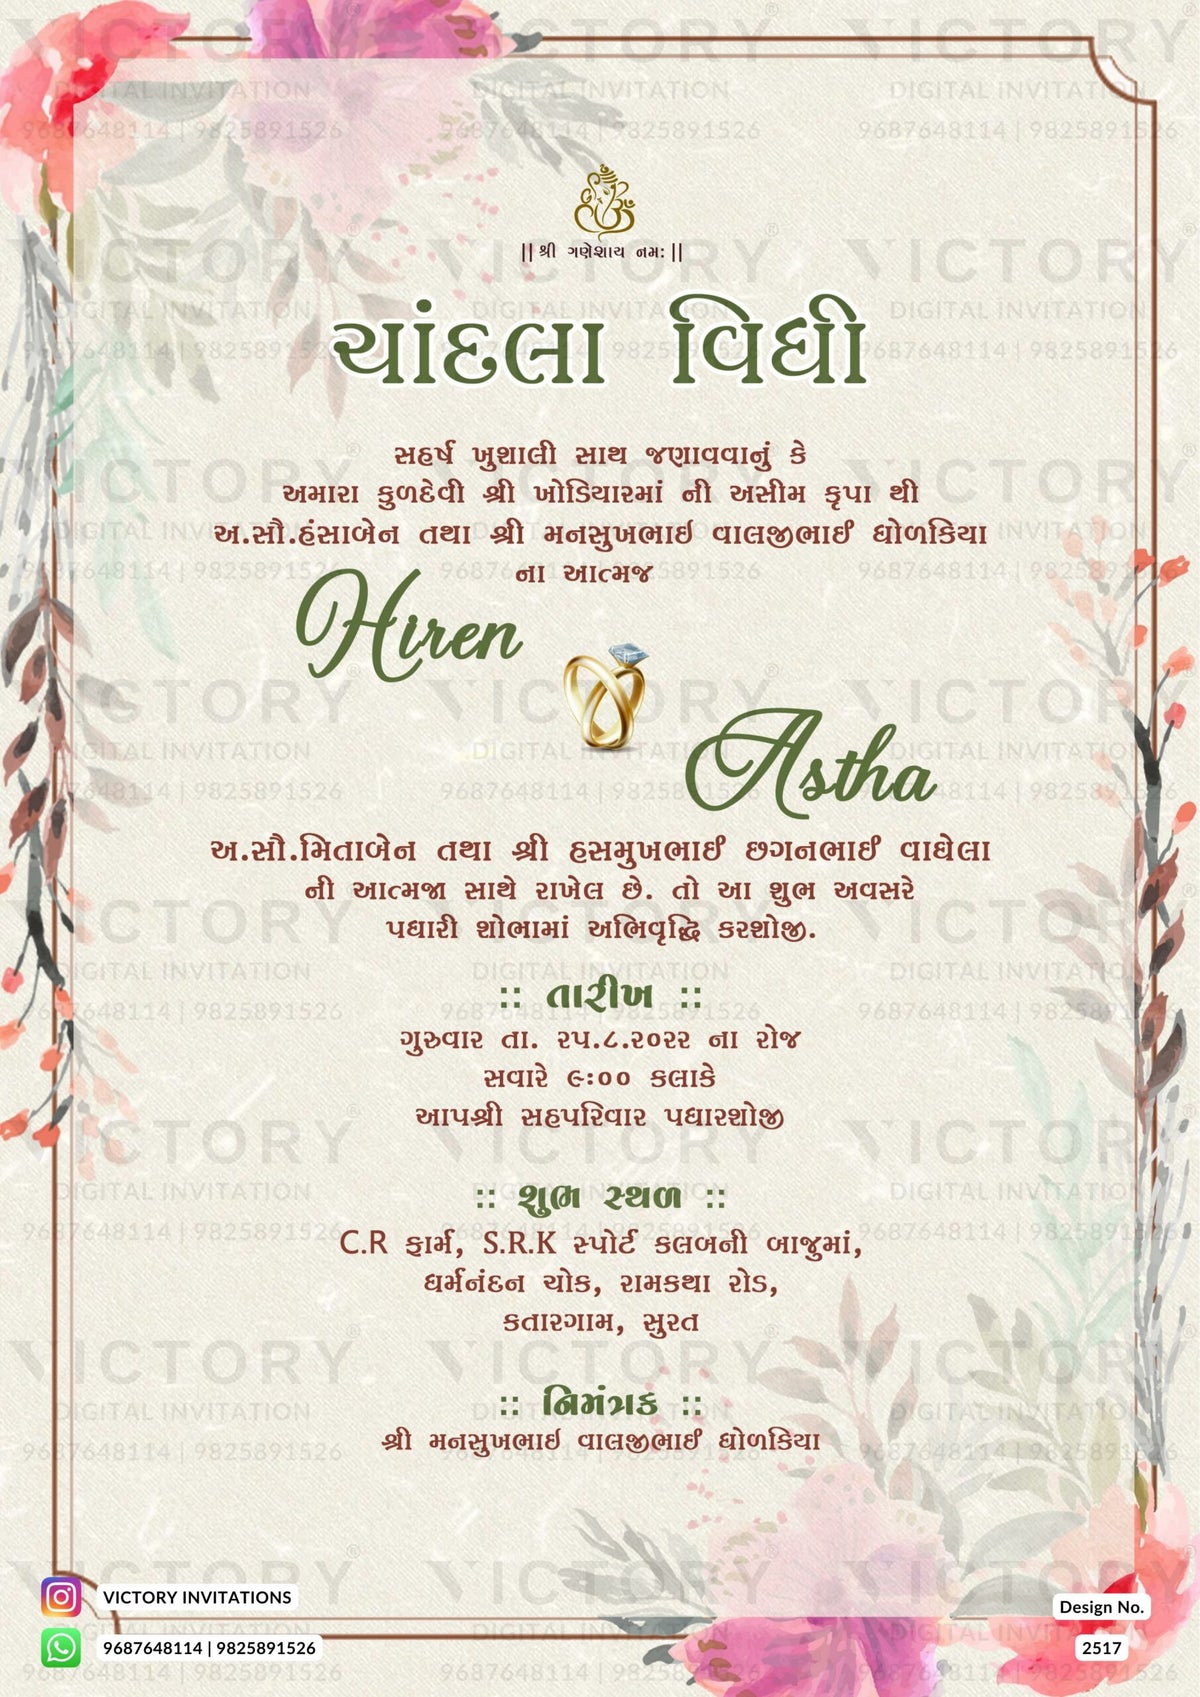 || શ્રી ગણેશાય નમ: ||
ચાંદલા વિધી
સહર્ષ ખુશાલી સાથ જણાવવાનું કે
અમારા કુળદેવી શ્રી ખોડિયારમાં ની અસીમ કૃપા થી
અ.સૌ.હંસાબેન તથા શ્રી મનસુખભાઇ વાલજીભાઈ ધોળકિયા
ના આત્મજ
Hiren
Astha
અ.સૌ.મિતાબેન તથા શ્રી હસમુખભાઈ છગનભાઈ વાઘેલા
ની આત્મજા સાથે રાખેલ છે. તો આ શુભ અવસરે
પધારી શોભામાં અભિવૃદ્ધિ કરશોજી.
:: તારીખ ::
ગુરુવાર તા. ૨૫.૮.૨૦૨૨ ના રોજ
સવારે ૯:૦૦ કલાકે
આપશ્રી સહપરિવાર પધારશોજી
:: શુભ સ્થળ ::
C.R ફાર્મ, S.R.K સ્પોર્ટ કલબની બાજુમાં,
ધર્મનંદન ચોક, રામકથા રોડ,
કતારગામ, સુરત
:: નિમંત્રક ::
શ્રી મનસુખભાઇ વાલજીભાઈ ધોળકિયા
VICTORY INVITATIONS
9687648114 | 9825891526
Design No.
2517
VICTORY
DIGITAL INVITATION
9687648114 | 9825891526